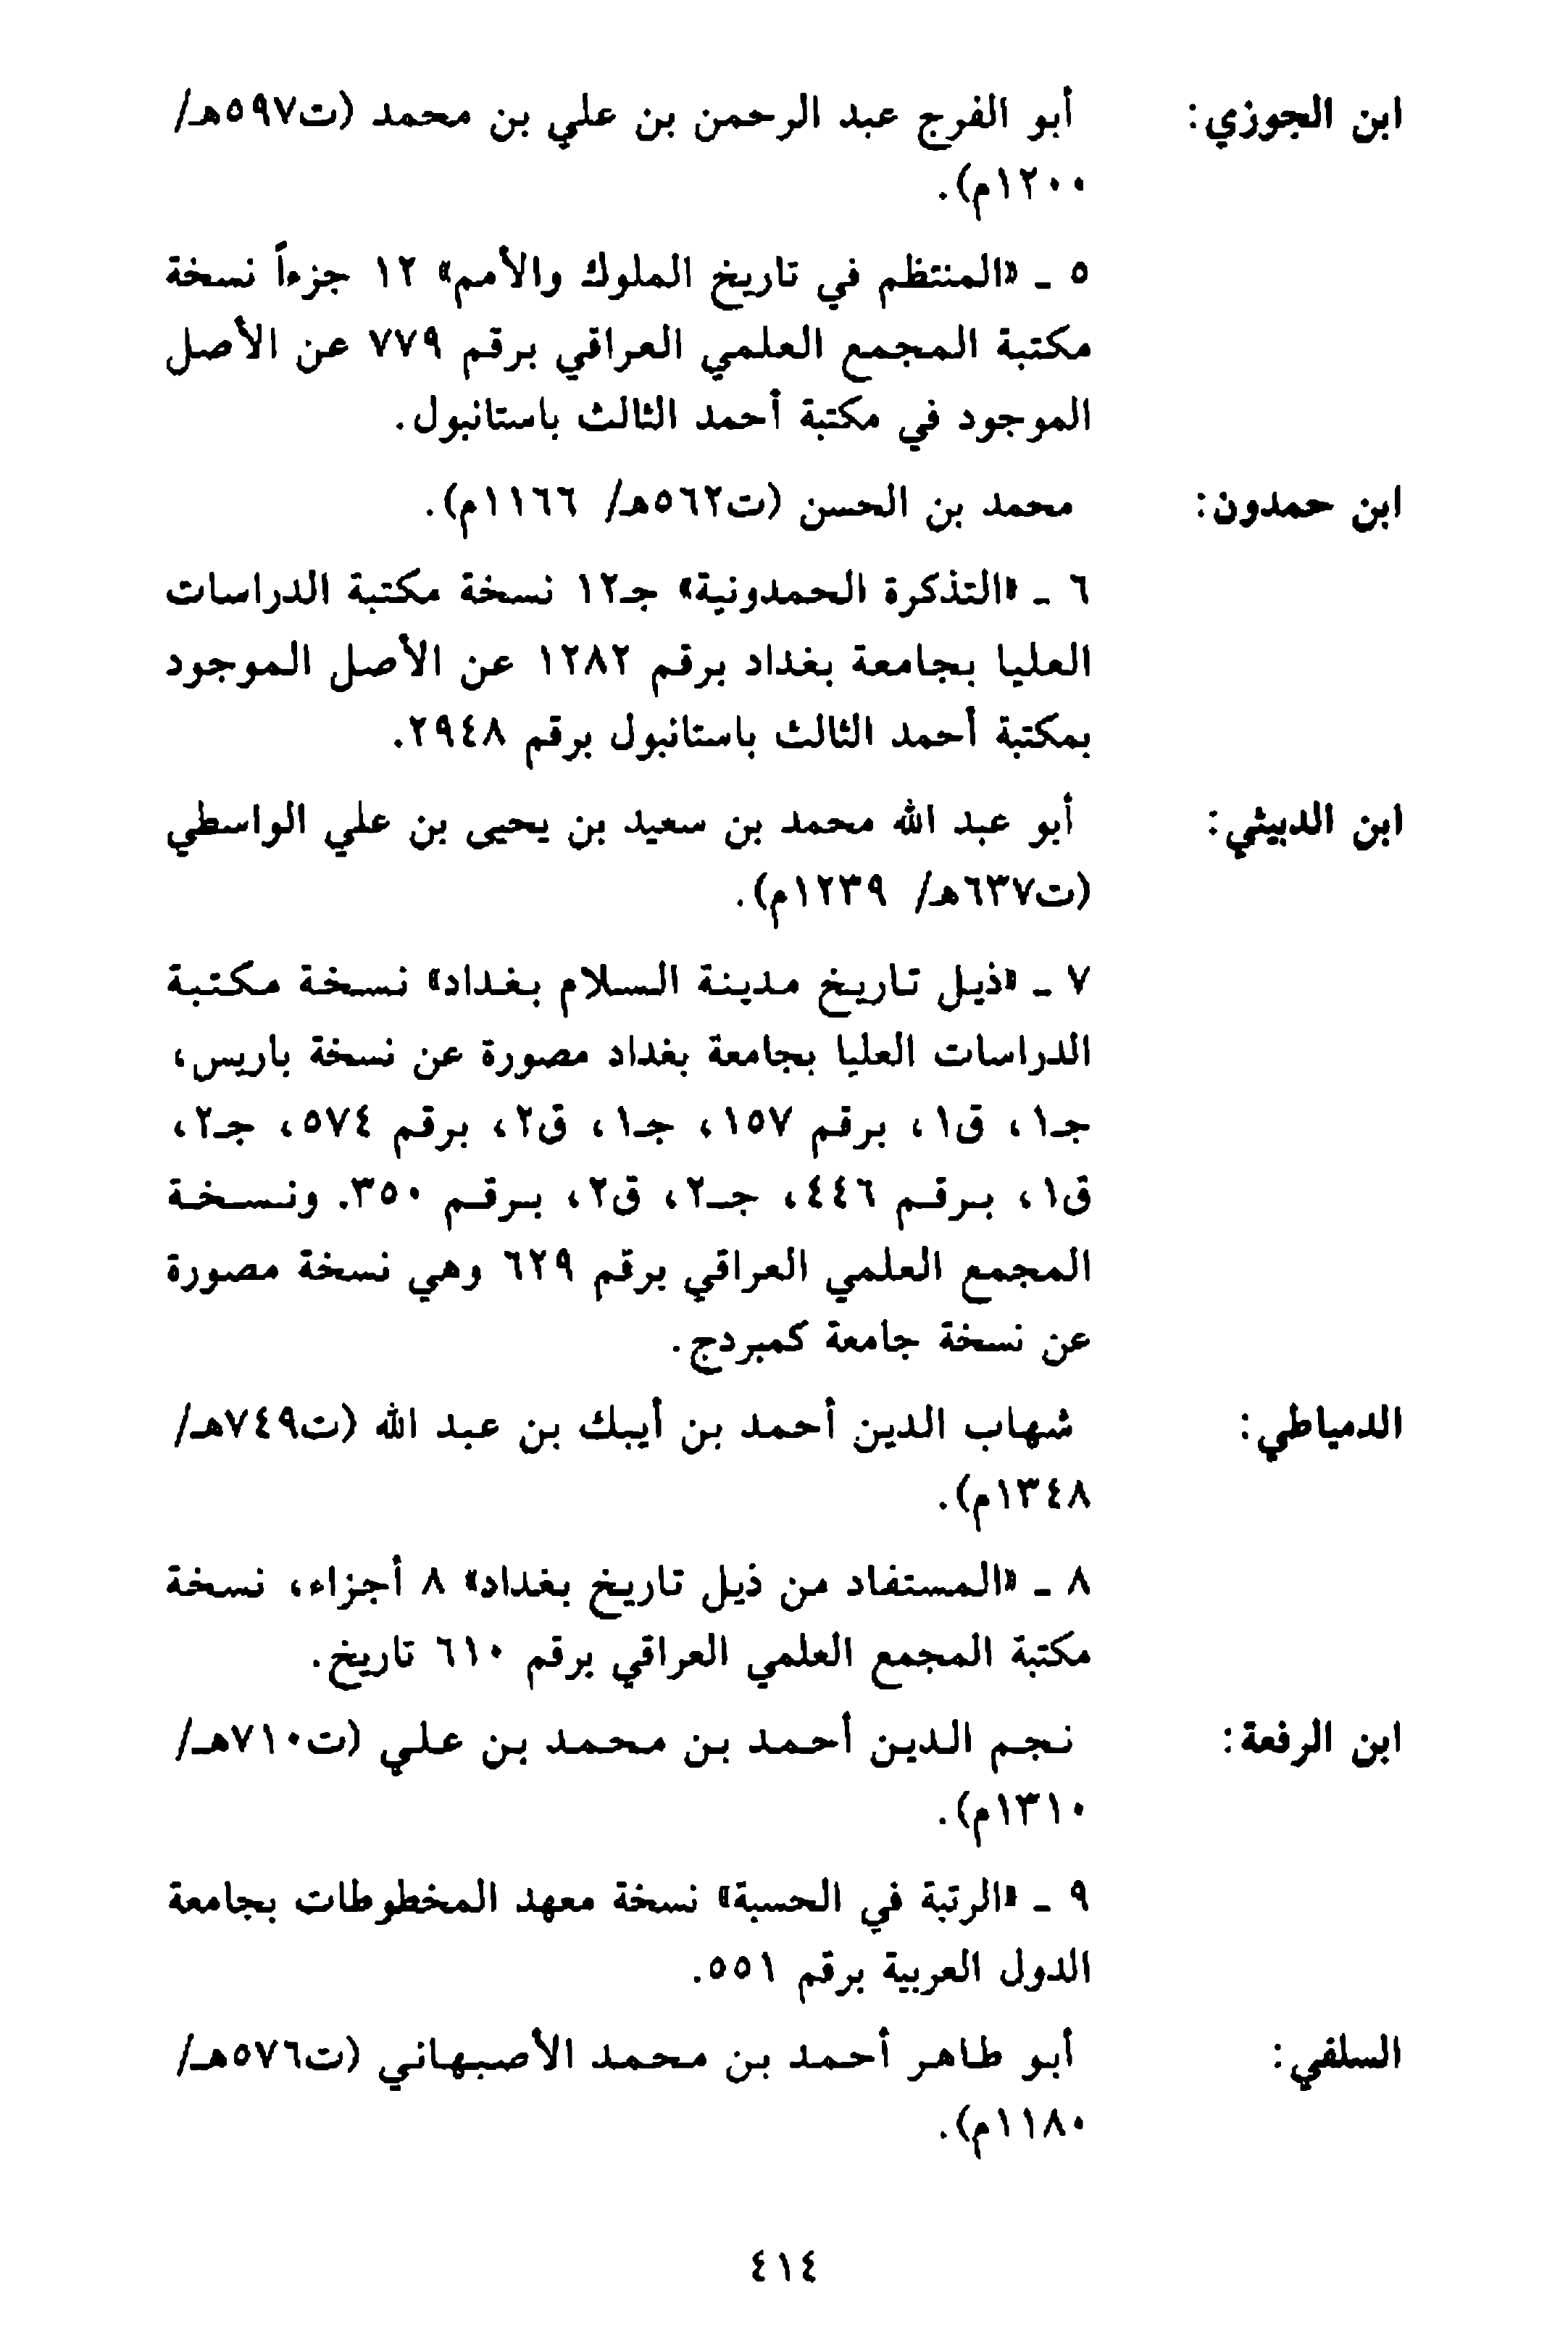 ابن الجوزي: أبو الفرج عبد الرحمن بن علي بن محمد (ت٥٩٧هـ/
١٢٠٠م).
٥ ـ «المنتظم في تاريخ الملوك والأمم» ١٢ جزءاً نسخة
مكتبة المجمع العلمي العراقي برقم ٧٧٩ عن الأصل
الموجود في مكتبة أحمد الثالث باستانبول.
ابن حمدون: محمد بن الحسن (ت٥٦٢هـ/ ١١٦٦م).
٦ ـ «التذكرة الحمدونية» جـ١٢ نسخة مكتبة الدراسات
العليا بجامعة بغداد برقم ١٢٨٢ عن الأصل الموجود
بمكتبة أحمد الثالث باستانبول برقم ٢٩٤٨.
ابن الدبيثي: أبو عبد الله محمد بن سعيد بن يحيى بن علي الواسطي
(ت٦٣٧هـ/ ١٢٣٩م).
٧ ـ «ذيل تاريخ مدينة السلام بغداد» نسخة مكتبة
الدراسات العليا بجامعة بغداد مصورة عن نسخة باريس،
جـ١، ق١، برقم ١٥٧، جـ١، ق٢، برقم ٥٧٤، جـ٢،
ق١، برقم ٤٤٦، جـ٢، ق٢، برقم ٣٥٠. ونسخة
المجمع العلمي العراقي برقم ٦٢٩ وهي نسخة مصورة
عن نسخة جامعة كمبردج.
الدمياطي: شهاب الدين أحمد بن أيبك بن عبد الله (ت٧٤٩هـ/
١٣٤٨م).
٨ ـ «المستفاد من ذيل تاريخ بغداد» ٨ أجزاء، نسخة
مكتبة المجمع العلمي العراقي برقم ٦١٠ تاريخ.
ابن الرفعة: نجم الدين أحمد بن محمد بن علي (ت٧١٠هـ/
١٣١٠م).
٩ ـ «الرتبة في الحسبة» نسخة معهد المخطوطات بجامعة
الدول العربية برقم ٥٥١.
السلفي: أبو طاهر أحمد بن محمد الأصبهاني (ت٥٧٦هـ/
١١٨٠م).
٤١٤